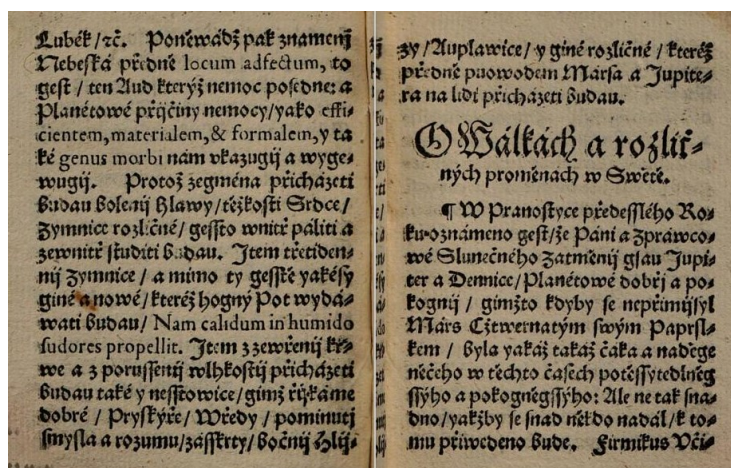 Lubék / ⁊č. Poněwádž pak znamenij
Nebeská předně locum adfectum, to
gest / ten Aud kterýž nemoc posedne: a
Planétowé přijčiny nemocy / yako effi-
cientem, materialem, & formalem, y ta
ké genus morbi nám vkazugij a wyge-
wugij. Protož zegména přicházeti
budau bolenij Hlawy / těžkosti Srdce /
Zymnice rozličné / gessto wnitř páliti a
zewnitř studiti budau. Item třetiden-
nij Zymnice / a mimo ty gesstě yakésy
giné a nowé / kteréž hogný Pot wydá-
wati budau / Nam calidum in humido
sudores propellit. Item z zewřenij kr-
we a z porussenij wlhkostij přicházeti
budau také y nesstowice / gimž řijkáme
dobré / Pryskýře / Wředy / pominutj
smysla a rozumu / zásskrty / bočnij Hlij-
zy / Auplawice / y giné rozličné / kteréž
předně puowodem Mársa a Jupite-
ra na lidi přicházeti budau.
O Wálkách a rozlič-
ných proměnach w Swětě.
¶ W Pranostyce předesslého Ro-
ku oznámeno gest / že Páni a Zpráwco-
wé Slunečného Zatměnij gsau Jupi-
ter a Dennice / Planétowé dobřj a po-
kognij / gimžto kdyby se nepřimijsyl
Márs Cžtwernatým swým Paprsl-
kem / byla yakáž takáž čáka a naděge
něčeho w těchto časech potěssytedlněg
ssýho a pokogněgssýho: Ale ne tak sna-
dno / yakžby se snad někdo nadál / k to-
mu přiwedeno bude. Firmikus Vči-